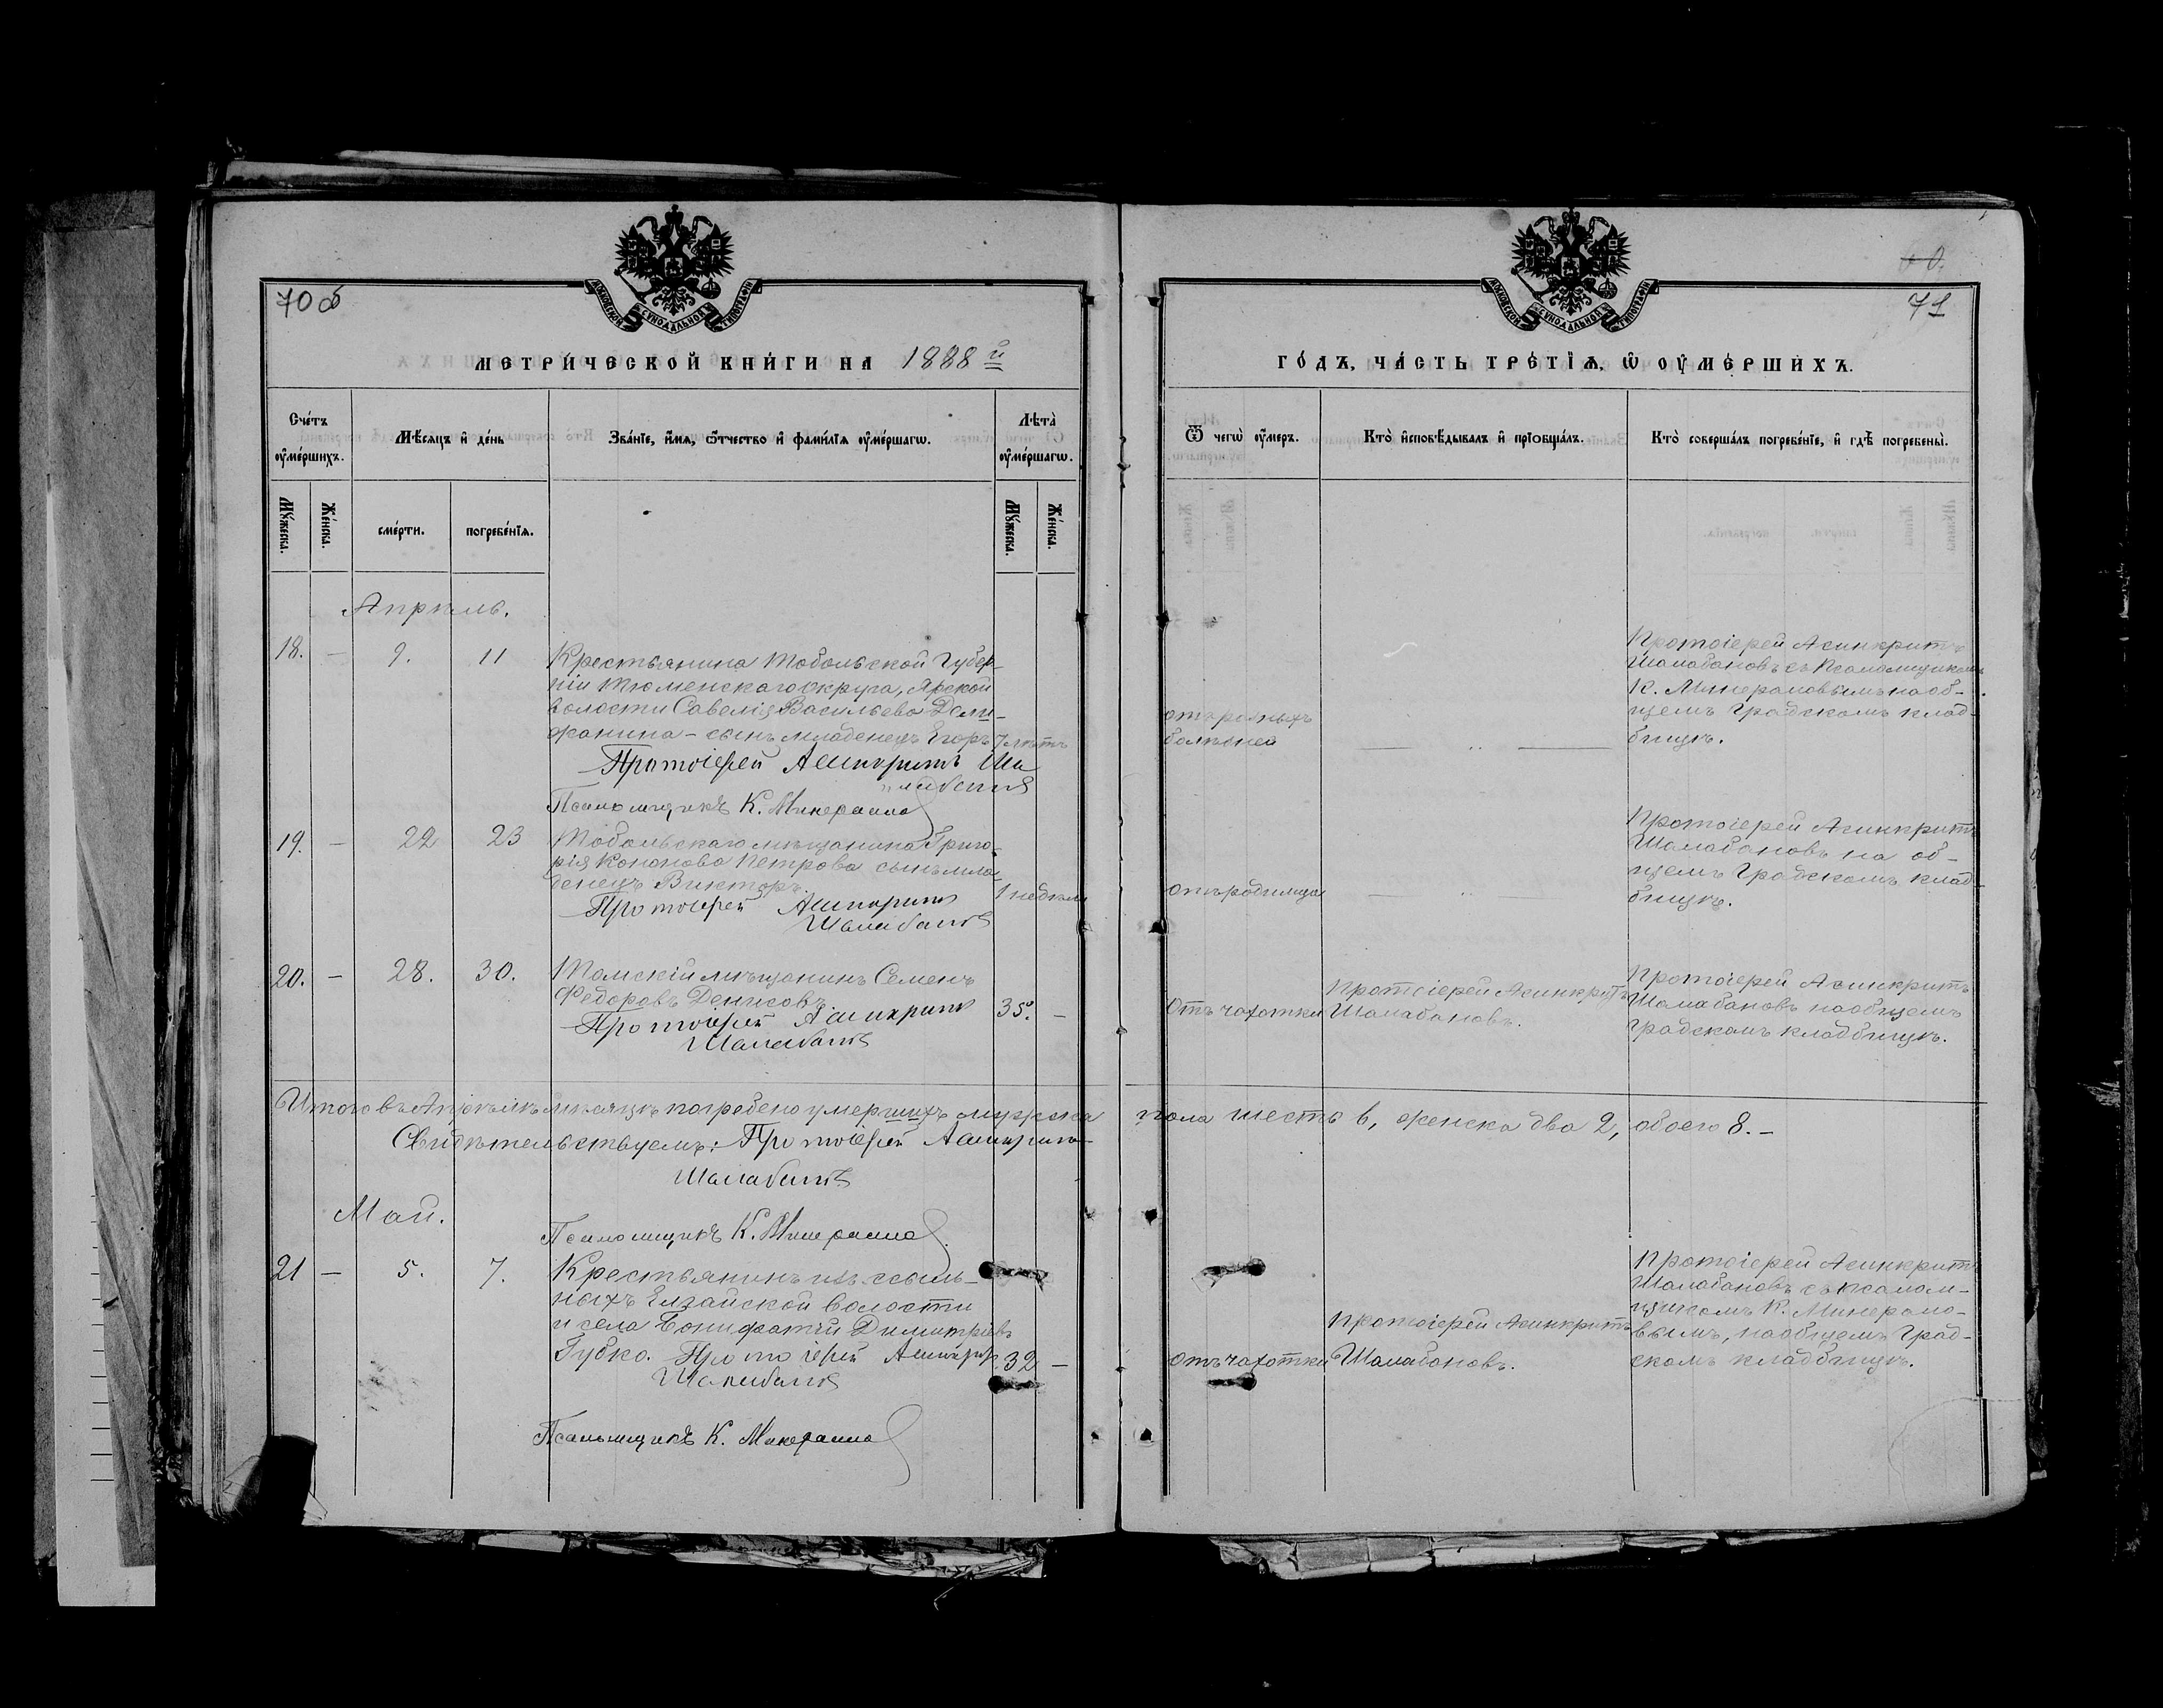 70 об
МЕТРИЧЕСКОЙ КНИГИ НА 1888 й
Счетъ оумершихъ.
Мужеска.
Женска.
Мѣсяцъ и день
смерти.
погребенїя.
Званїе, имя, ѿчество и фамилїя оумершагѡ.
Лѣта оумершагѡ.
Мужеска.
Женска.
Апрѣль.
18. — 9. 11
Крестьянина Тобольской Губер-
ніи Тюменскаго округа, Ярской
волости Савелія Васильева
сынъ младенецъ Егоръ 7 лѣтъ
Протоіерей Асинкритъ Ша
лабановъ
Псаломщикъ К. Минераловъ
19. — 22 23
Тобольскаго мѣщанина Григо-
рія Кононова Петрова сынъ мла-
денецъ Викторъ. 1 недѣли
Протоіерей Асинкритъ
Шалабановъ
20. — 28. 30.
Томскій мѣщанинъ Семенъ
Федоровъ Денисовъ. 35. —
Протоіерей Асинкритъ
Шалабановъ
Итого въ Апрѣлѣ мѣсяцѣ погребено умершихъ мужска
Свидѣтельствуемъ: Протоіерей Асинкритъ
Шалабановъ
Май.
Псаломщикъ К. Минераловъ
21 — 5. 7.
Крестьянинъ изъ ссыль-
ныхъ Елгайской волости
и села Бонифатій Димитріевъ
Губко. Протоіерей Асинкритъ 32 —
Шалабановъ
Псаломщикъ К. Минераловъ
71
ГОДЪ, ЧАСТЬ ТРЕТЇЯ, Ѡ ОУМЕРШИХЪ.
Ѿ чегѡ оумеръ.
Кто исповѣдывалъ и прїобщалъ.
Кто совершалъ погребенїе, и гдѣ погребены.
болѣзней
Протоіерей Асинкритъ
Шалабановъ съ Псаломщикомъ
К. Минераловымъ на об-
щемъ Градскомъ клад-
бищѣ.
отъ родимца
Протоіерей Асинкритъ
Шалабановъ на об-
щемъ Градскомъ клад-
бищѣ.
Отъ чахотки
Протоіерей Асинкритъ
Шалабановъ.
Протоіерей Асинкритъ
Шалабановъ на общемъ
градскомъ кладбищѣ.
пола шесть 6, женска два 2, обоего 8. —
отъ чахотки
Протоіерей Асинкритъ
Шалабановъ.
Протоіерей Асинкритъ
Шалабановъ съ псалом-
щикомъ К. Минерало-
вымъ, на общемъ Град-
скомъ кладбищѣ.